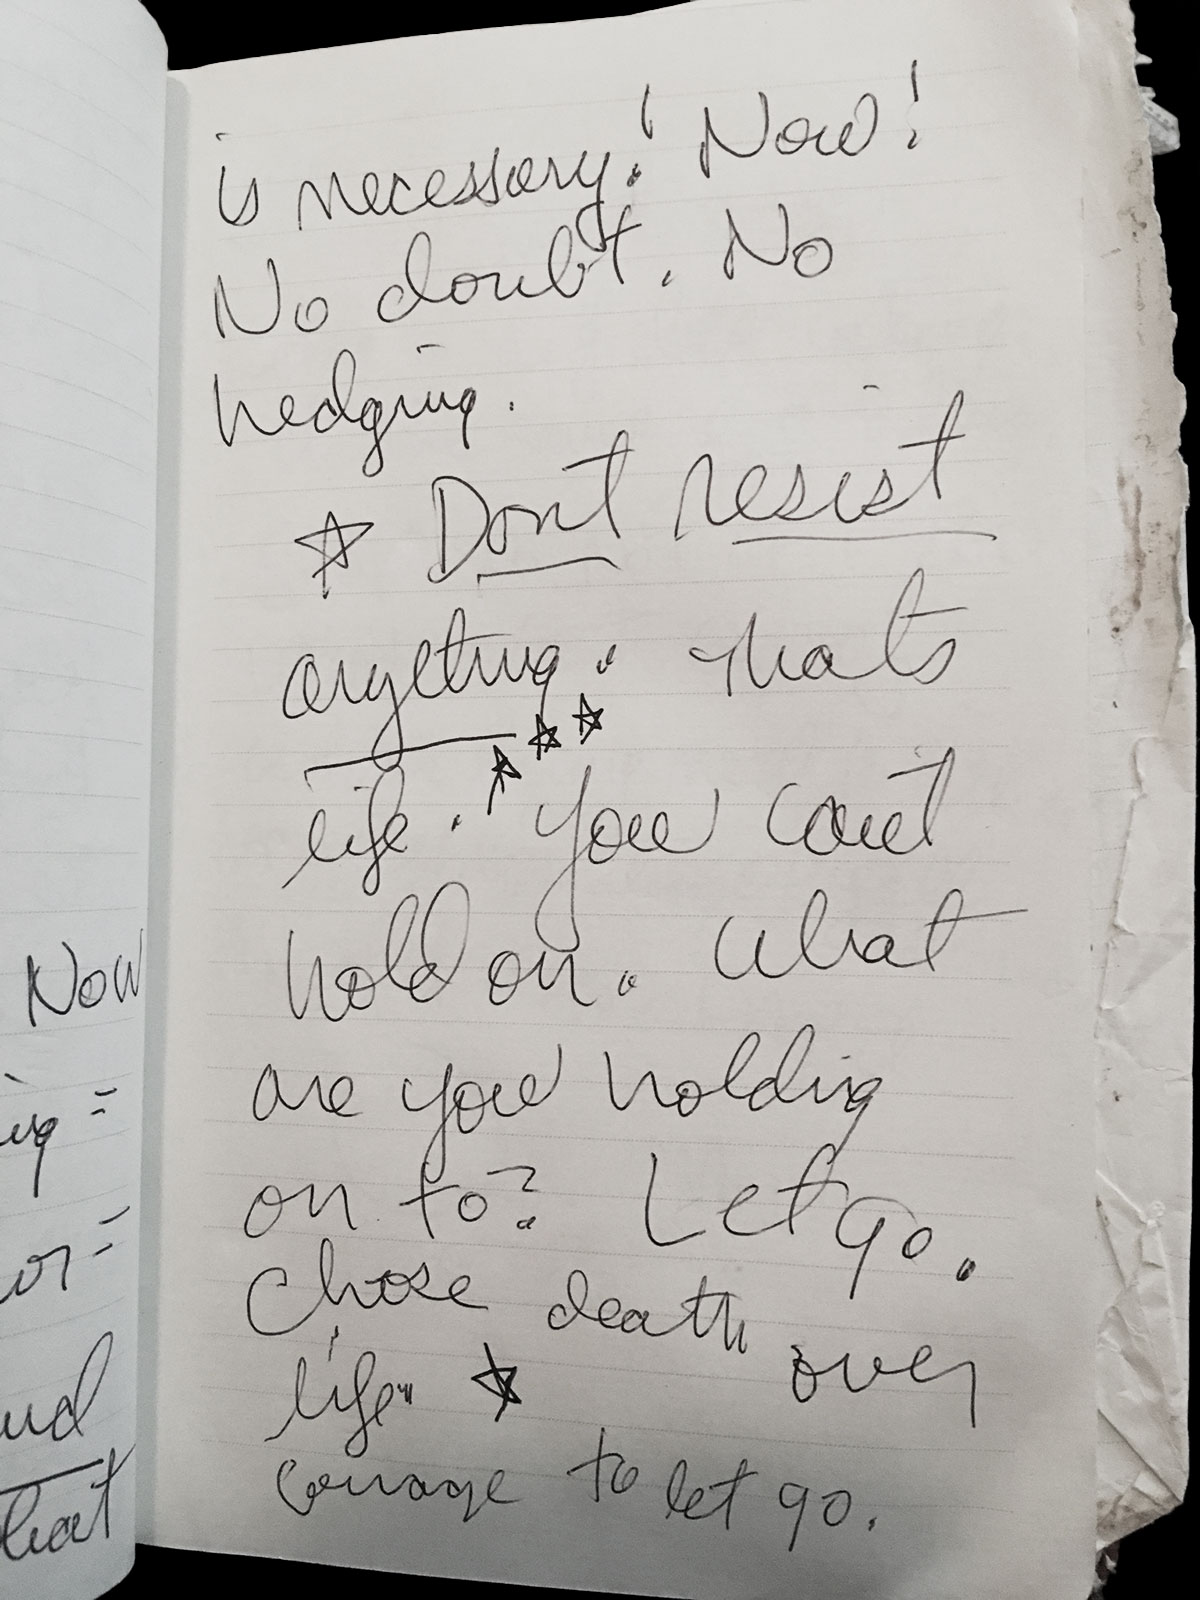 is necessary! Now!
No doubt. No
hedging.
☆ Dont resist
anything. Thats
☆☆☆
life. You can't
hold on. What
are you holding
on to? Let go.
Chose death over
life. ☆
Courage to let go.
Now